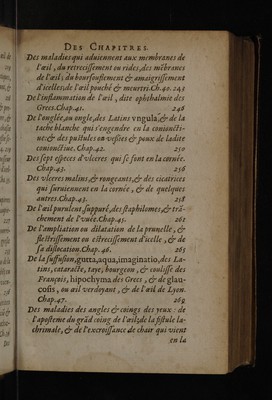 DES CHAPITRES.
Des maladies qui aduiennent aux membranes de
l'œil, du retrecissement ou rides, des mẽbranes
de l'œil; du boursouflement & amaigrissement
d'icelles: de l'œil poché & meurtri. Ch. 40. 243
De l'inflammation de l'œil, dite ophthalmie des
Grecs. Chap. 41. 246
De l'onglée, ou ongle, des Latins vngula, & de la
tache blanche qui s'engendre en la conioncti-
ue: & des pustules en vessies & poux de ladite
conionctiue. Chap. 42. 250
Des sept especes d'vlceres qui se font en la cornée.
Chap. 43. 256
Des vlceres malins, & rongeants, & des cicatrices
qui suruiennent en la cornée, & de quelques
autres. Chap. 43. 258
De l'œil purulent, suppuré, des staphilomes, & tré-
chement de l'vuée. Chap. 45. 262
De l'ampliation ou dilatation de la prunelle, &
flestrissement ou estrecissement d'icelle, & de
sa dislocation. Chap. 46. 265
De la suffusion, gutta, aqua, imaginatio, des La-
tins, cataracte, taye, bourgeon, & coulisse des
François, hipochyma des Grecs, & de glau-
cosis, ou œil verdoyant, & de l'œil de Lyon.
Chap. 47. 269
Des maladies des angles & coings des yeux: de
l'aposteme du grãd coing de l'œil; de la fistule la-
chrimale, & de l'excroissance de chair qui vient
en la